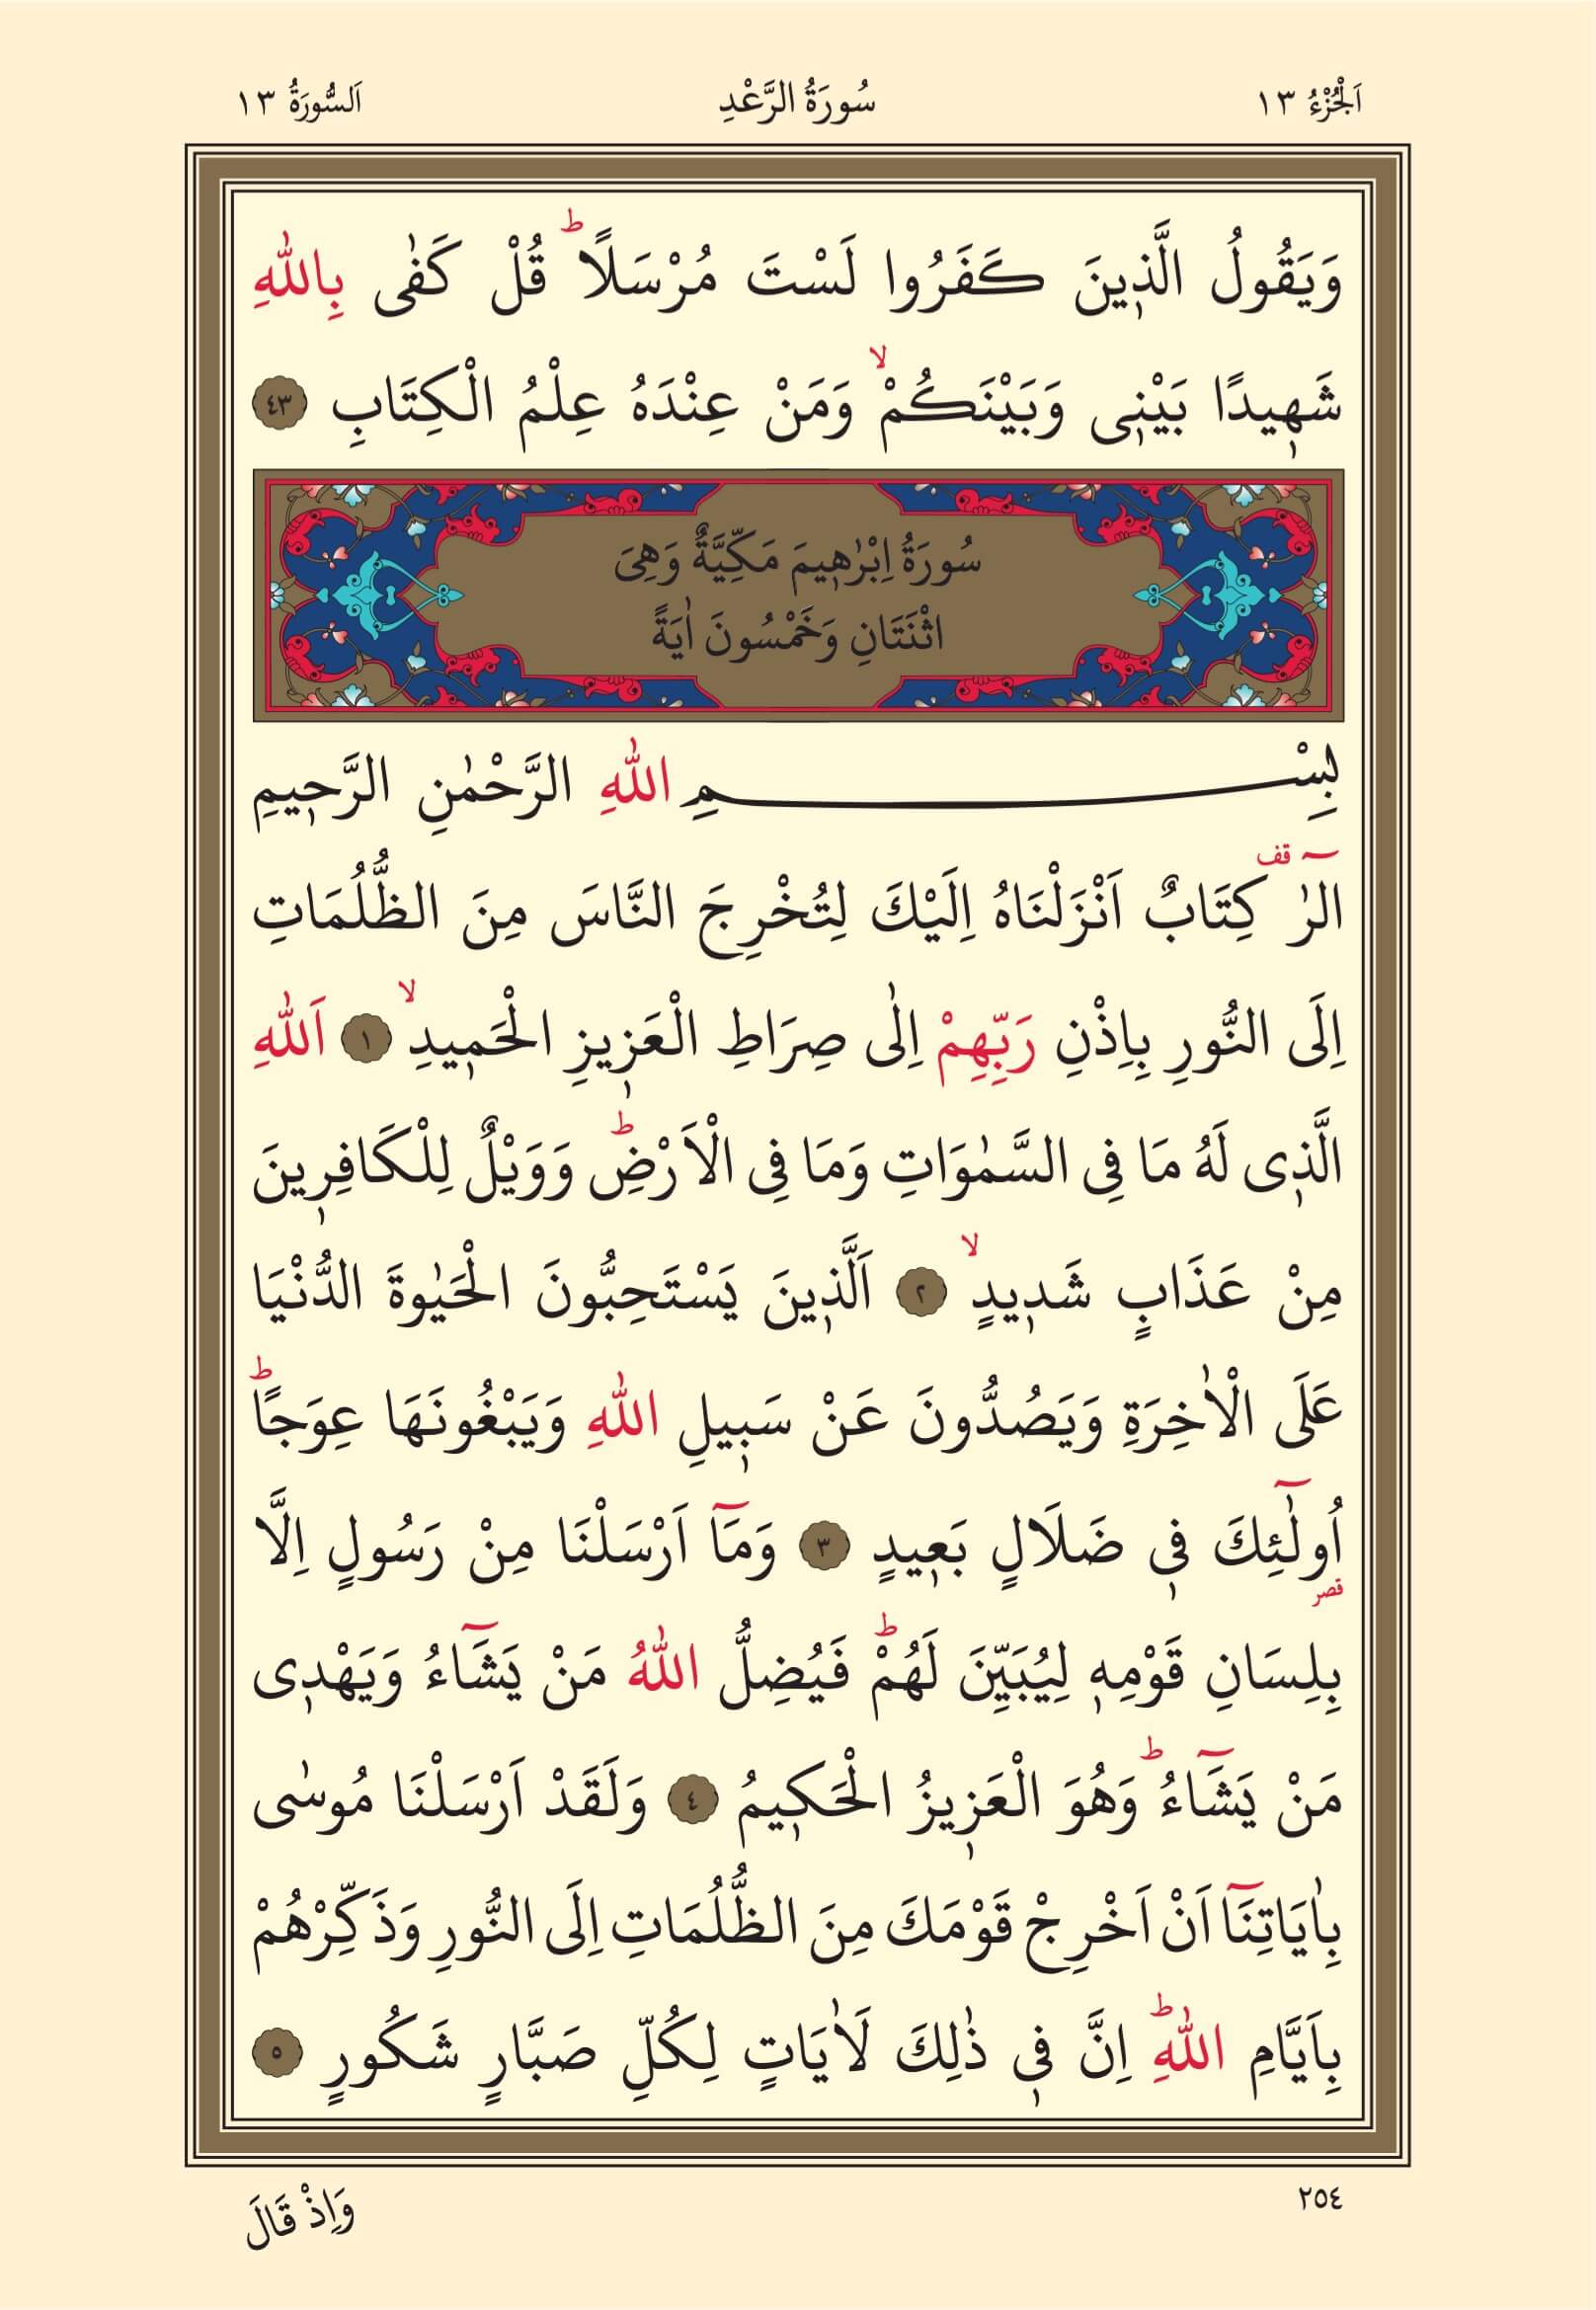 اَلْجُزْءُ ١٣ سُورَةُ الرَّعْدِ اَلسُّورَةُ ١٣
وَيَقُولُ الَّذ۪ينَ كَفَرُوا لَسْتَ مُرْسَلًاۜ قُلْ كَفٰى بِاللّٰهِ
شَه۪يدًا بَيْن۪ى وَبَيْنَكُمْۙ وَمَنْ عِنْدَهُ عِلْمُ الْكِتَابِ ٤٣
سُورَةُ اِبْرٰه۪يمَ مَكِّيَّةٌ وَهِىَ
اثْنَتَانِ وَخَمْسُونَ اٰيَةً
بِسْمِ اللّٰهِ الرَّحْمٰنِ الرَّح۪يمِ
الٓرٰ۠ قف كِتَابٌ اَنْزَلْنَاهُ اِلَيْكَ لِتُخْرِجَ النَّاسَ مِنَ الظُّلُمَاتِ
اِلَى النُّورِ بِاِذْنِ رَبِّهِمْ اِلٰى صِرَاطِ الْعَز۪يزِ الْحَم۪يدِۙ ١ اَللّٰهِ
الَّذ۪ى لَهُ مَا فِى السَّمٰوَاتِ وَمَا فِى الْاَرْضِۜ وَوَيْلٌ لِلْكَافِر۪ينَ
مِنْ عَذَابٍ شَد۪يدٍۙ ٢ اَلَّذ۪ينَ يَسْتَحِبُّونَ الْحَيٰوةَ الدُّنْيَا
عَلَى الْاٰخِرَةِ وَيَصُدُّونَ عَنْ سَب۪يلِ اللّٰهِ وَيَبْغُونَهَا عِوَجًاۜ
اُولٰٓئِكَ ف۪ى ضَلَالٍ بَع۪يدٍ ٣ وَمَٓا اَرْسَلْنَا مِنْ رَسُولٍ اِلَّا
قصر
بِلِسَانِ قَوْمِه۪ لِيُبَيِّنَ لَهُمْۜ فَيُضِلُّ اللّٰهُ مَنْ يَشَٓاءُ وَيَهْد۪ى
مَنْ يَشَٓاءُۜ وَهُوَ الْعَز۪يزُ الْحَك۪يمُ ٤ وَلَقَدْ اَرْسَلْنَا مُوسٰى
بِاٰيَاتِنَٓا اَنْ اَخْرِجْ قَوْمَكَ مِنَ الظُّلُمَاتِ اِلَى النُّورِ وَذَكِّرْهُمْ
بِاَيَّامِ اللّٰهِۜ اِنَّ ف۪ى ذٰلِكَ لَاٰيَاتٍ لِكُلِّ صَبَّارٍ شَكُورٍ ٥
٢٥٤ وَاِذْ قَالَ